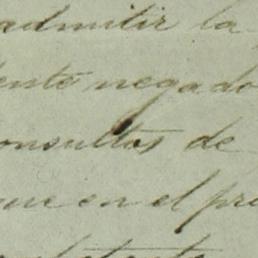 admitir la
ente negado
onsultas de
que en el pre